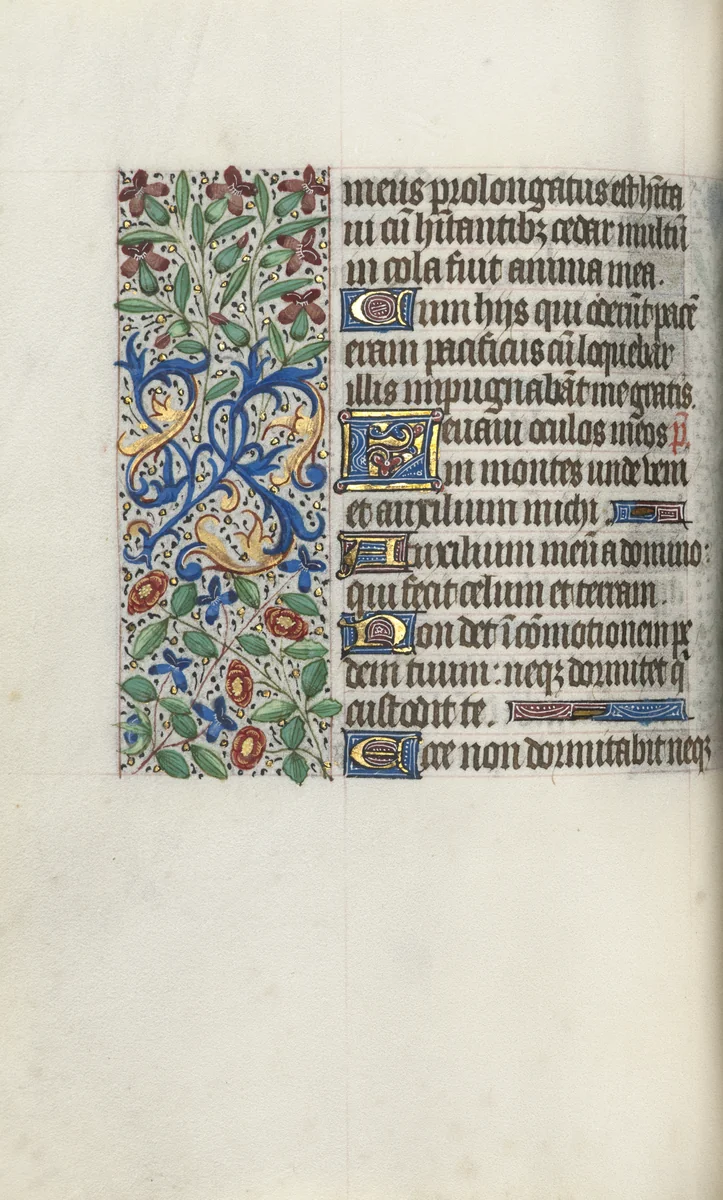 meus prolongatus est hīta
ui cū hītantibꝫ cedar multū
in cola fuit anima mea.
Cum hijs qui oderūt pacē
eram pacificus cū loquebar
illis impugnabāt me gratis.
Leuaui oculos meos p̄.
in montes unde veni
et auxilium michi.
Auxilium meū a domino:
qui fecit celum et terram.
Non det ī cōmotionem pe
dem tuum: neqꝫ dormitet q̄
custodit te.
Ecce non dormitabit neqꝫ